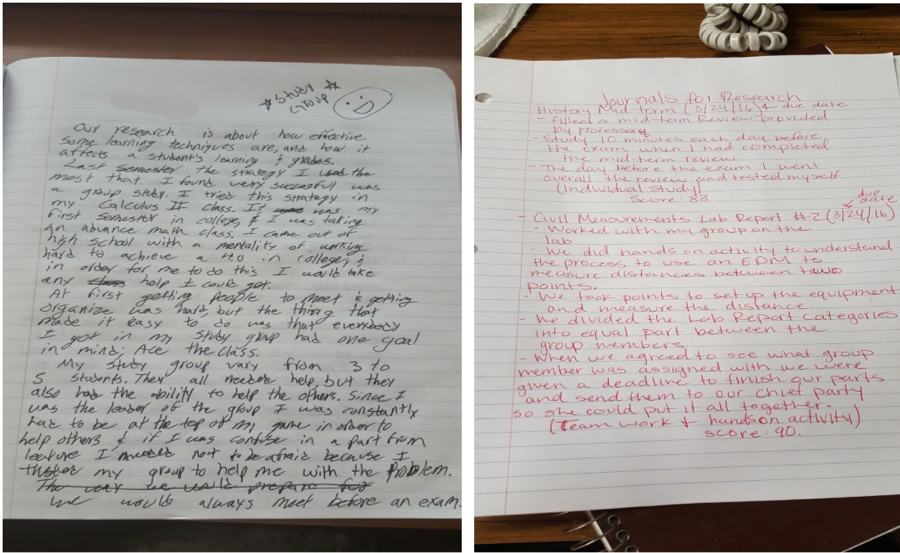 * STUDY *
GROUP
Our research is about how effective
some learning techniques are, and how it
affects a student's learning & grades.
Last Semester the strategy I used the
most that I found very succesful was
a group study. I tried this strategy in
my Calculus II class. It was my
first semester in college, & I was taking
an advance math class. I came out of
high school with a mentality of working
hard to achieve a 4.0 in college, &
in order for me to do this I would take
any help I could get.
At first getting people to meet & getting
organize was hard, but the thing that
made it easy to do was that everybody
I got in my study group had one goal
in mind; Ace the class.
My study group vary from 3 to
5 students. They all needed help, but they
also had the ability to help the others. Since I
was the leader of the group I was constantly
had to be at the top of my game in order to
help others & if I was confuse in a part from
lecture I needed not to be afraid because I
trusted my group to help me with the problem.
The way we would prepare for
We would always meet before an exam.
Journals for Research
History Mid-term (3/24/16) ← due date
- Filled a mid-term Review provided
by professor
- Study 10 minutes each day before
the exam when I had completed
the mid-term review.
- The day before the exam I went
overall the review and tested myself.
(Individual Study)
Score: 83
due
date
- Civil Measurements Lab Report #2 (3/24/16)
- Worked with my group on the
lab
- We did hands on activity to understand
the process to use an EDM to
measure distances between two
points.
- We took points to set up the equipment
and measure the distance
- We divided the Lab Report categories
into equal part between the
group members.
- When we agreed to see what group
member was assigned with we were
given a deadline to finish our parts
and send them to our chief party
so she could put it all together.
(Team work & hands on activity)
score: 90.